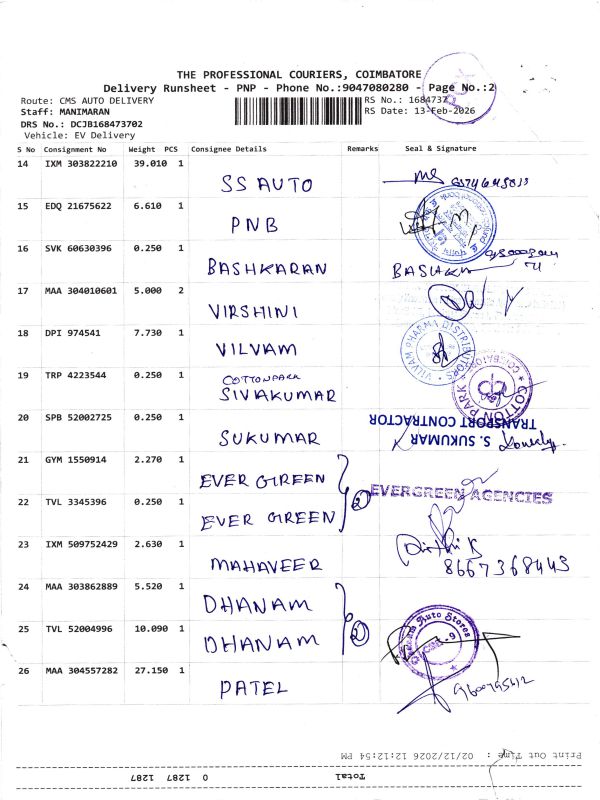 THE PROFESSIONAL COURIERS, COIMBATORE
Delivery Runsheet - PNP - Phone No.:9047080280 - Page No.:2
Route: CMS AUTO DELIVERY
RS No.: 1684737
Staff: MANIMARAN
RS Date: 13-Feb-2026
DRS No.: DCJB168473702
Vehicle: EV Delivery
S No Consignment No Weight PCS Consignee Details Remarks Seal & Signature
14 IXM 303822210 39.010 1
SS AUTO
15 EDQ 21675622 6.610 1
PNB
16 SVK 60630396 0.250 1
BASHKARAN
17 MAA 304010601 5.000 2
VIRSHINI
18 DPI 974541 7.730 1
VILVAM
VILVAM PHARMA DISTRIBUTORS
19 TRP 4223544 0.250 1
COTTONPARK
SIVAKUMAR
COTTON PARK
20 SPB 52002725 0.250 1
SUKUMAR
S. SUKUMAR
TRANSPORT CONTRACTOR
21 GYM 1550914 2.270 1
EVER GIREEN
22 TVL 3345396 0.250 1
EVER GIREEN
2
EVERGREEN AGENCIES
23 IXM 509752429 2.630 1
MAHAVEER
8667368443
24 MAA 303862889 5.520 1
DHANAM
25 TVL 52004996 10.090 1
DHANAM
2
Auto Stores
26 MAA 304557282 27.150 1
PATEL
Print Out Time : 02/12/2026 12:12:54 PM
Total 0 1287 1287